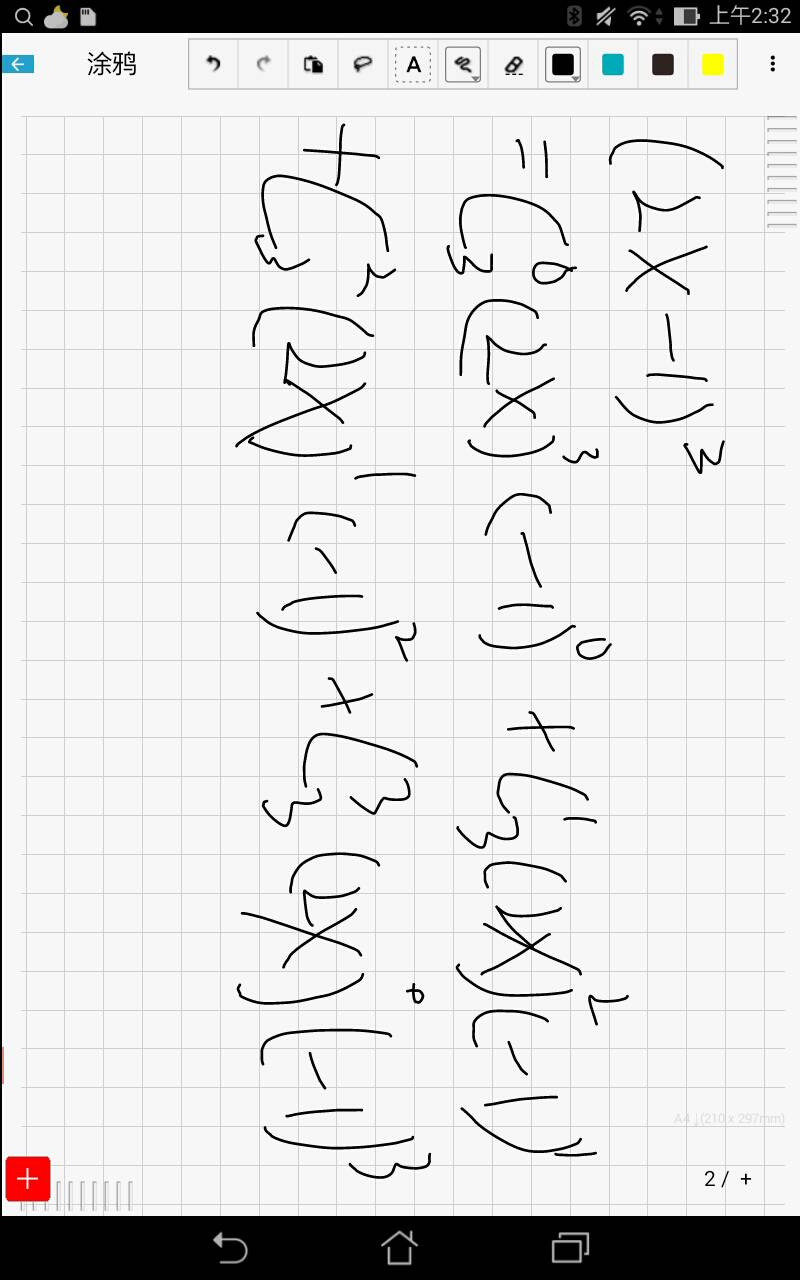 上午2:32
涂鸦
A
(2x-1)³
=C₃⁰(2x)³(-1)⁰+C₃¹(2x)²(-1)¹
+C₃²(2x)¹(-1)²+C₃³(2x)⁰(-1)³
A4↓(210 x 297mm)
2 / +